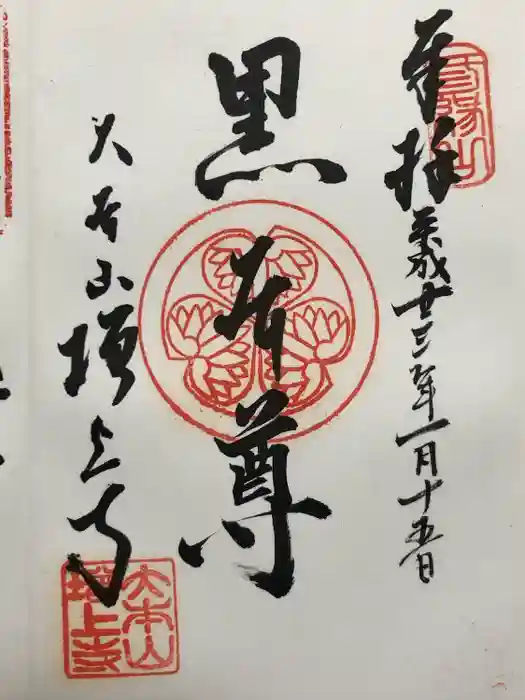 三縁山
奉拝 平成廿三年一月十五日
黒本尊
大本山増上寺
大本山
増上寺